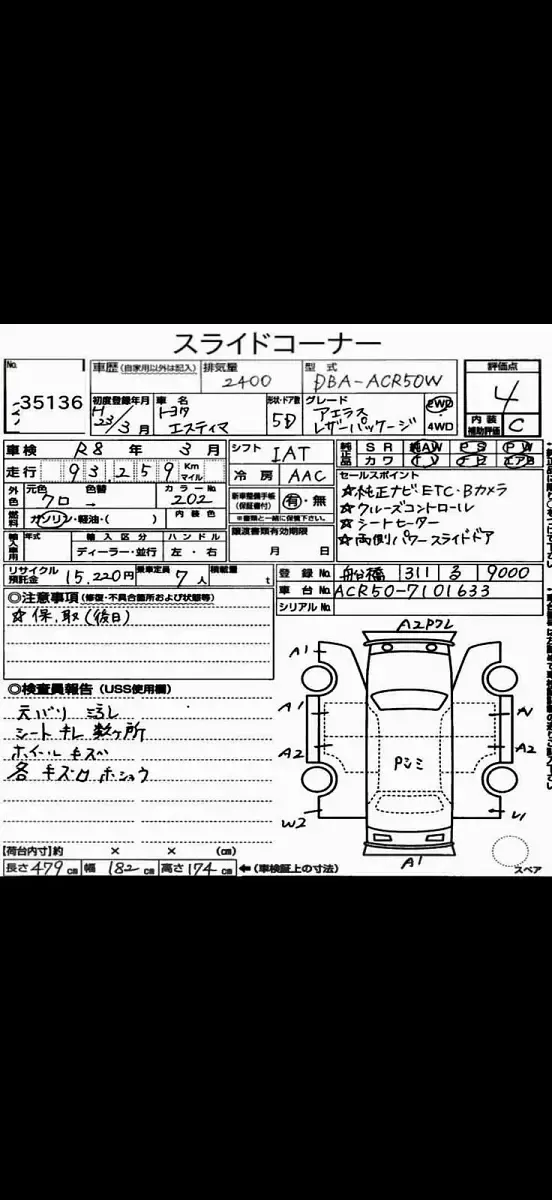 スライドコーナー
No.
35136
車歴 (自家用以外は記入)
排気量
2400
型式
DBA-ACR50W
評価点
4
内装補助評価 C
初度登録年月
H 23/3月
車名
トヨタ エスティマ
形状・ドア数
5D
グレード
アエラス
レザーパッケージ
2WD
4WD
車検 R8年 3月
走行 93,259 Km マイル
シフト IAT
冷房 AAC
純正品 SR 純AW PS PW
カワ TV ナビ エアB
外色 元色 クロ 色替 →
カラーNo. 202
燃料 ガソリン・軽油・( )
内装色
新車整備手帳(保証書付) 有・無
※書類と一緒に保管下さい。
セールスポイント
☆純正ナビ ETC・Bカメラ
☆クルーズコントロール
☆シートヒーター
☆両側パワースライドドア
輸入車用 年式
輸入区分 ディーラー・並行
ハンドル 左・右
譲渡書類有効期限
月 日
リサイクル預託金 15,220円
乗車定員 7人
積載量 t
登録No. 船橋 311 る 9000
車台No. ACR50-7101633
シリアルNo.
◎注意事項(修復・不具合箇所および状態等)
☆保、取(後日)
◎検査員報告 (USS使用欄)
天バリ ヨゴレ
シート キレ 数ヶ所
ホイール キズ
各 キズ ホシュウ
A1
A1
A2
W2
Pシミ
A2
U1
A1
スペア
【荷台内寸】約 × × (cm)
長さ 479 cm 幅 182 cm 高さ 174 cm ←(車検証上の寸法)